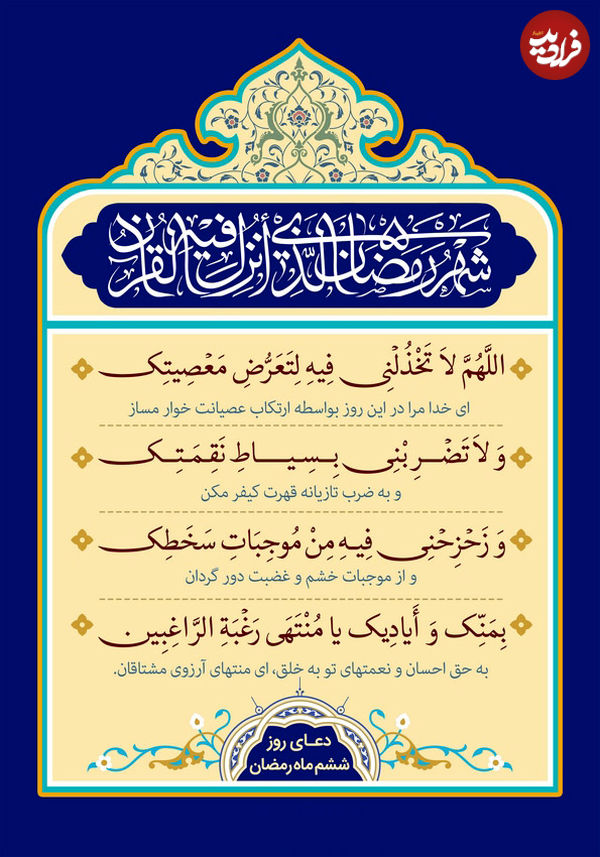 اخبار
فرادید
شَهْرُ رَمَضَانَ الَّذِي أُنْزِلَ فِيهِ الْقُرْآنُ
اللَّهُمَّ لاَ تَخْذُلْنِی فِیهِ لِتَعَرُّضِ مَعْصِیَتِکَ
ای خدا مرا در این روز بواسطه ارتکاب عصیانت خوار مساز
وَ لاَ تَضْرِبْنِی بِسِیَاطِ نَقِمَتِکَ
و به ضرب تازیانه قهرت کیفر مکن
وَ زَحْزِحْنِی فِیهِ مِنْ مُوجِبَاتِ سَخَطِکَ
و از موجبات خشم و غضبت دور گردان
بِمَنِّکَ وَ أَیَادِیکَ یَا مُنْتَهَى رَغْبَةِ الرَّاغِبِینَ
به حق احسان و نعمتهای تو به خلق، ای منتهای آرزوی مشتاقان.
دعای روز
ششم ماه رمضان